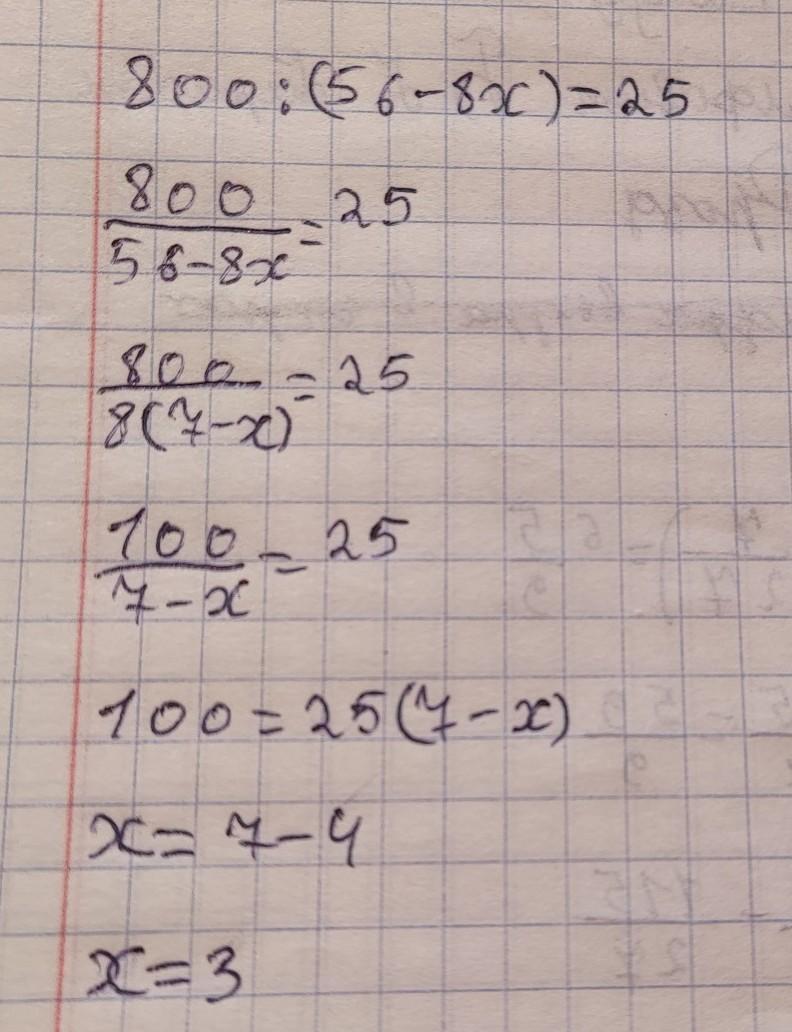 800:(56-8x)=25
800/(56-8x)=25
800/8(7-x)=25
100/(7-x)=25
100=25(7-x)
x=7-4
x=3